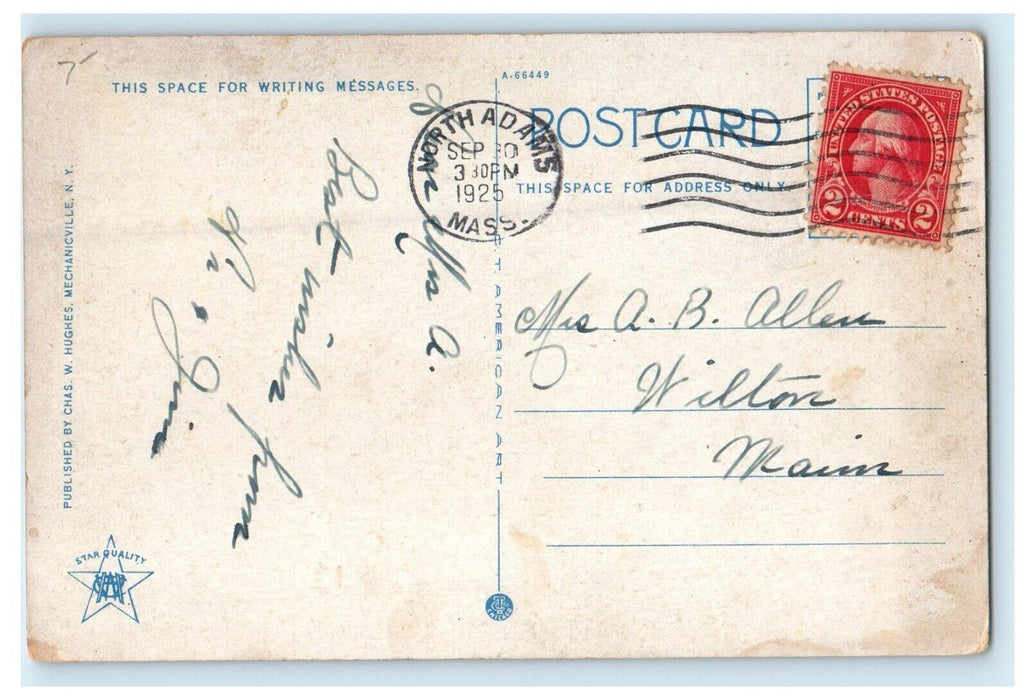 THIS SPACE FOR WRITING MESSAGES.
A-66449
POSTCARD
THIS SPACE FOR ADDRESS ONLY
NORTH ADAMS
SEP 30
3 30PM
1925
MASS.
UNITED STATES POSTAGE
2 CENTS 2
Best wishes from
Mrs A. B. Allen
Wilton
Maine
PUBLISHED BY CHAS. W. HUGHES, MECHANICVILLE, N.Y.
STAR QUALITY
AMERICAN ART
CHICAGO